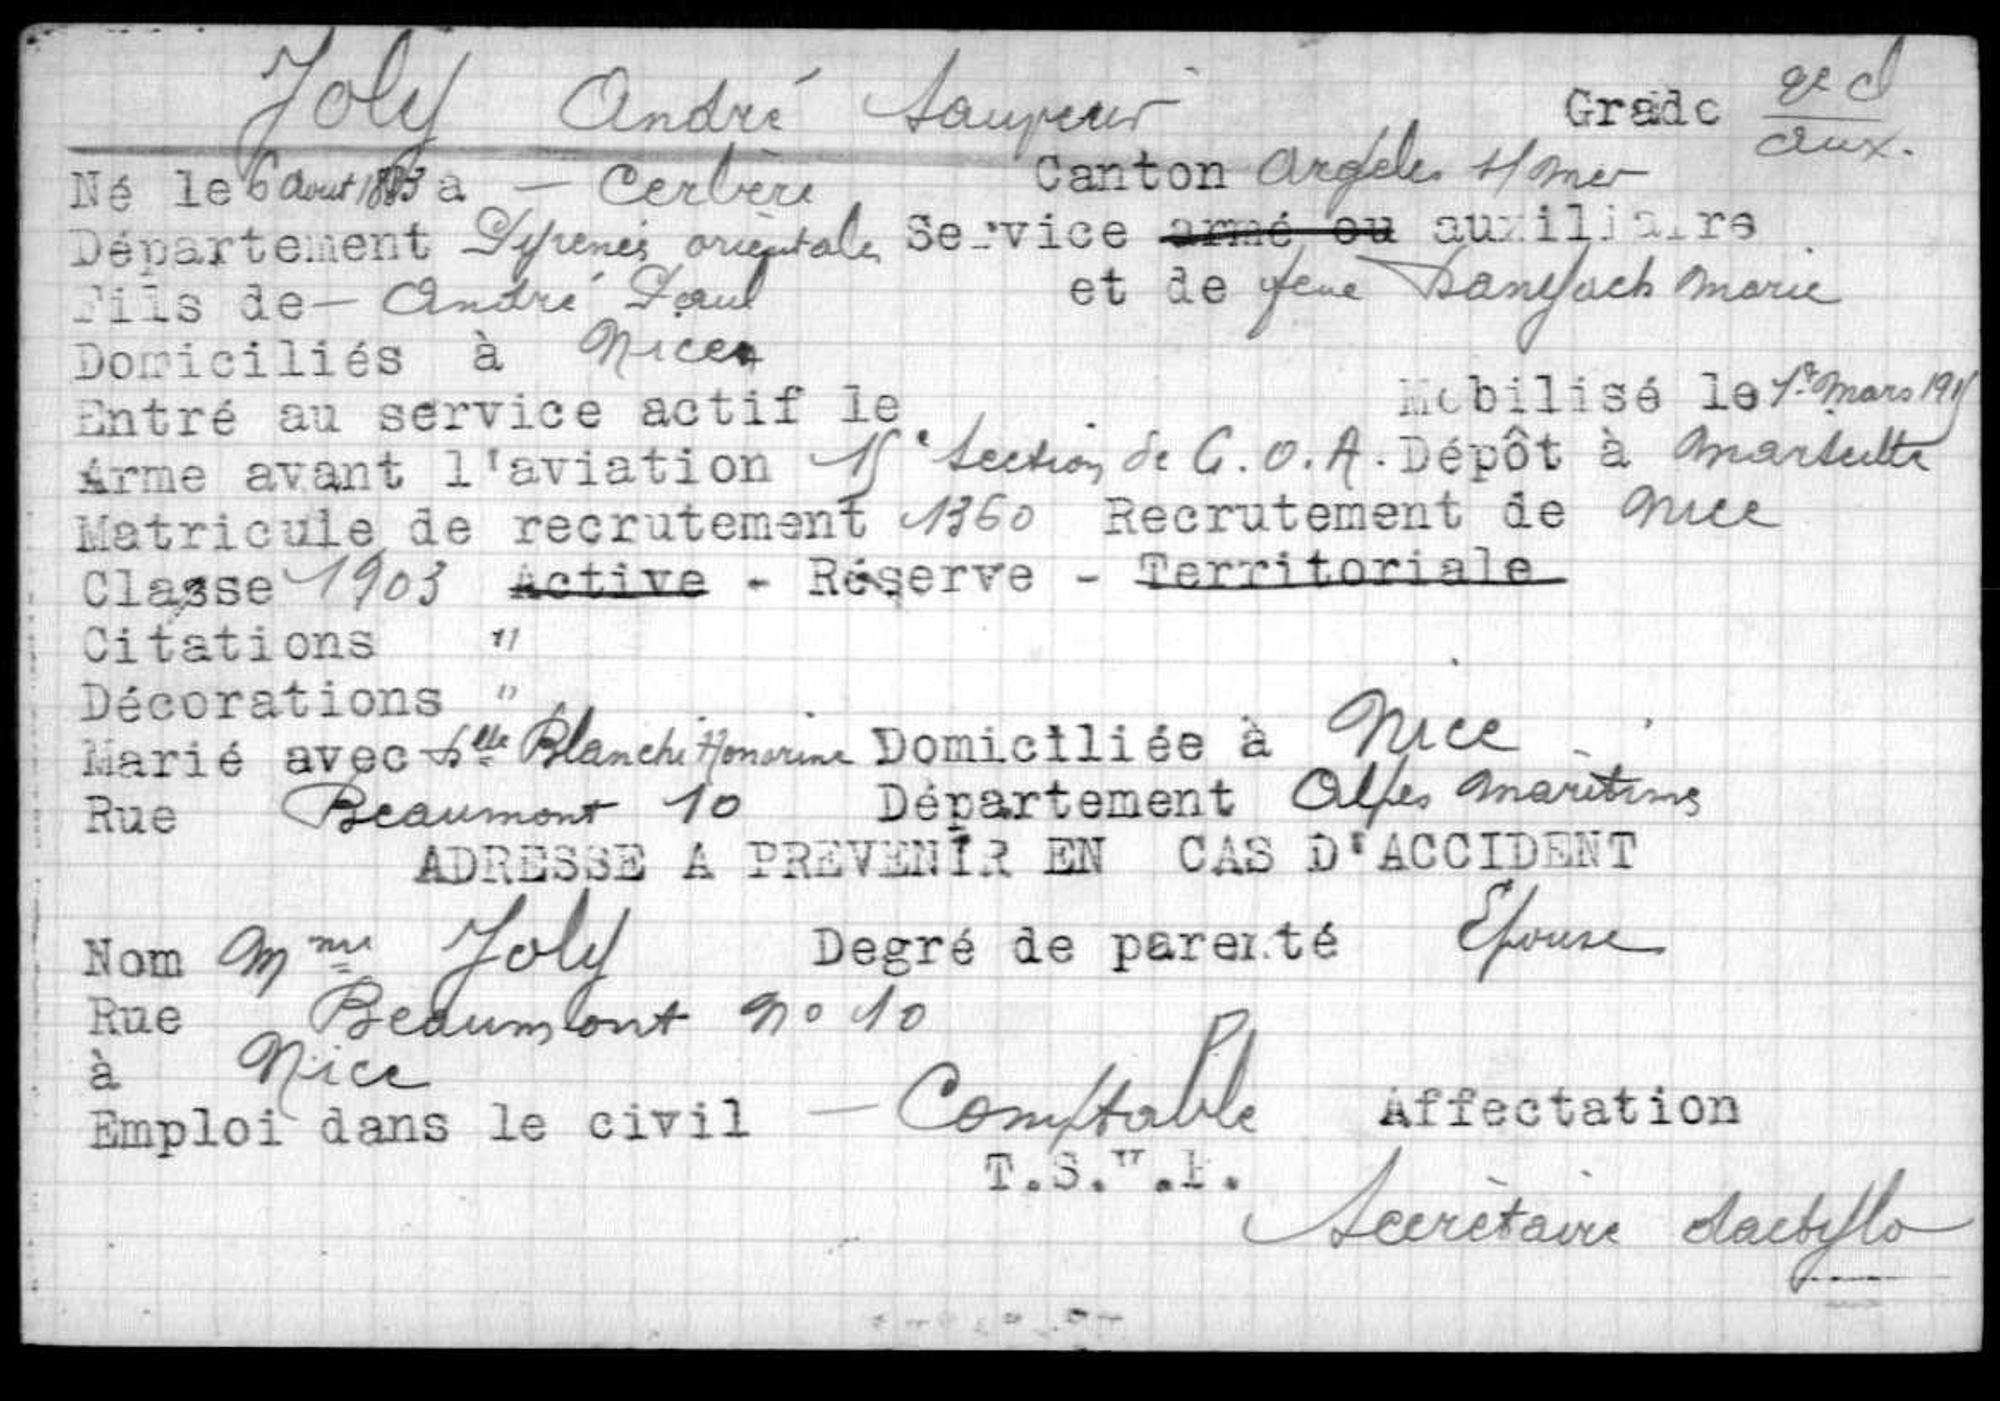 Joly André Sauveur Grade 2e cl
aux.
Né le 6 Aout 1883 a - Cerbère Canton Argeles s/ mer
Département Pyrenées orientales Service armé ou auxiliaire
Fils de - André Paul et de feue Marie
Domiciliés à Nice
Entré au service actif le Mobilisé le 1er Mars 1915
Arme avant l'aviation 15e Section de C.O.A. Dépôt à Marseille
Matricule de recrutement 1360 Recrutement de Nice
Classe 1903 Active - Réserve - Territoriale
Citations "
Décorations "
Marié avec Blanche Honorine Domiciliée à Nice
Rue Beaumont 10 Département Alpes Maritimes
ADRESSE A PREVENIR EN CAS D'ACCIDENT
Nom Mme Joly Degré de parenté Epouse
Rue Beaumont No 10
à Nice
Emploi dans le civil - Comptable Affectation
T.S.F.
Secrètaire dactylo